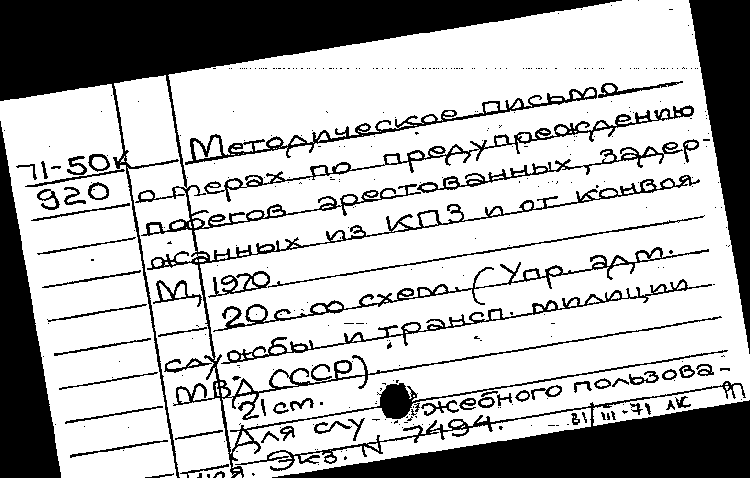 71-50К
920
Методическое письмо
о мерах по предупреждению
побегов арестованных, задер-
жанных из КПЗ и от конвоя
М, 1970.
20 с. со схем. (Упр. адм.
службы и трансп. милиции
МВД СССР).
21 cm.
Для служебного пользова-
ния. Экз. N 7494.
31/III-71 ЛК